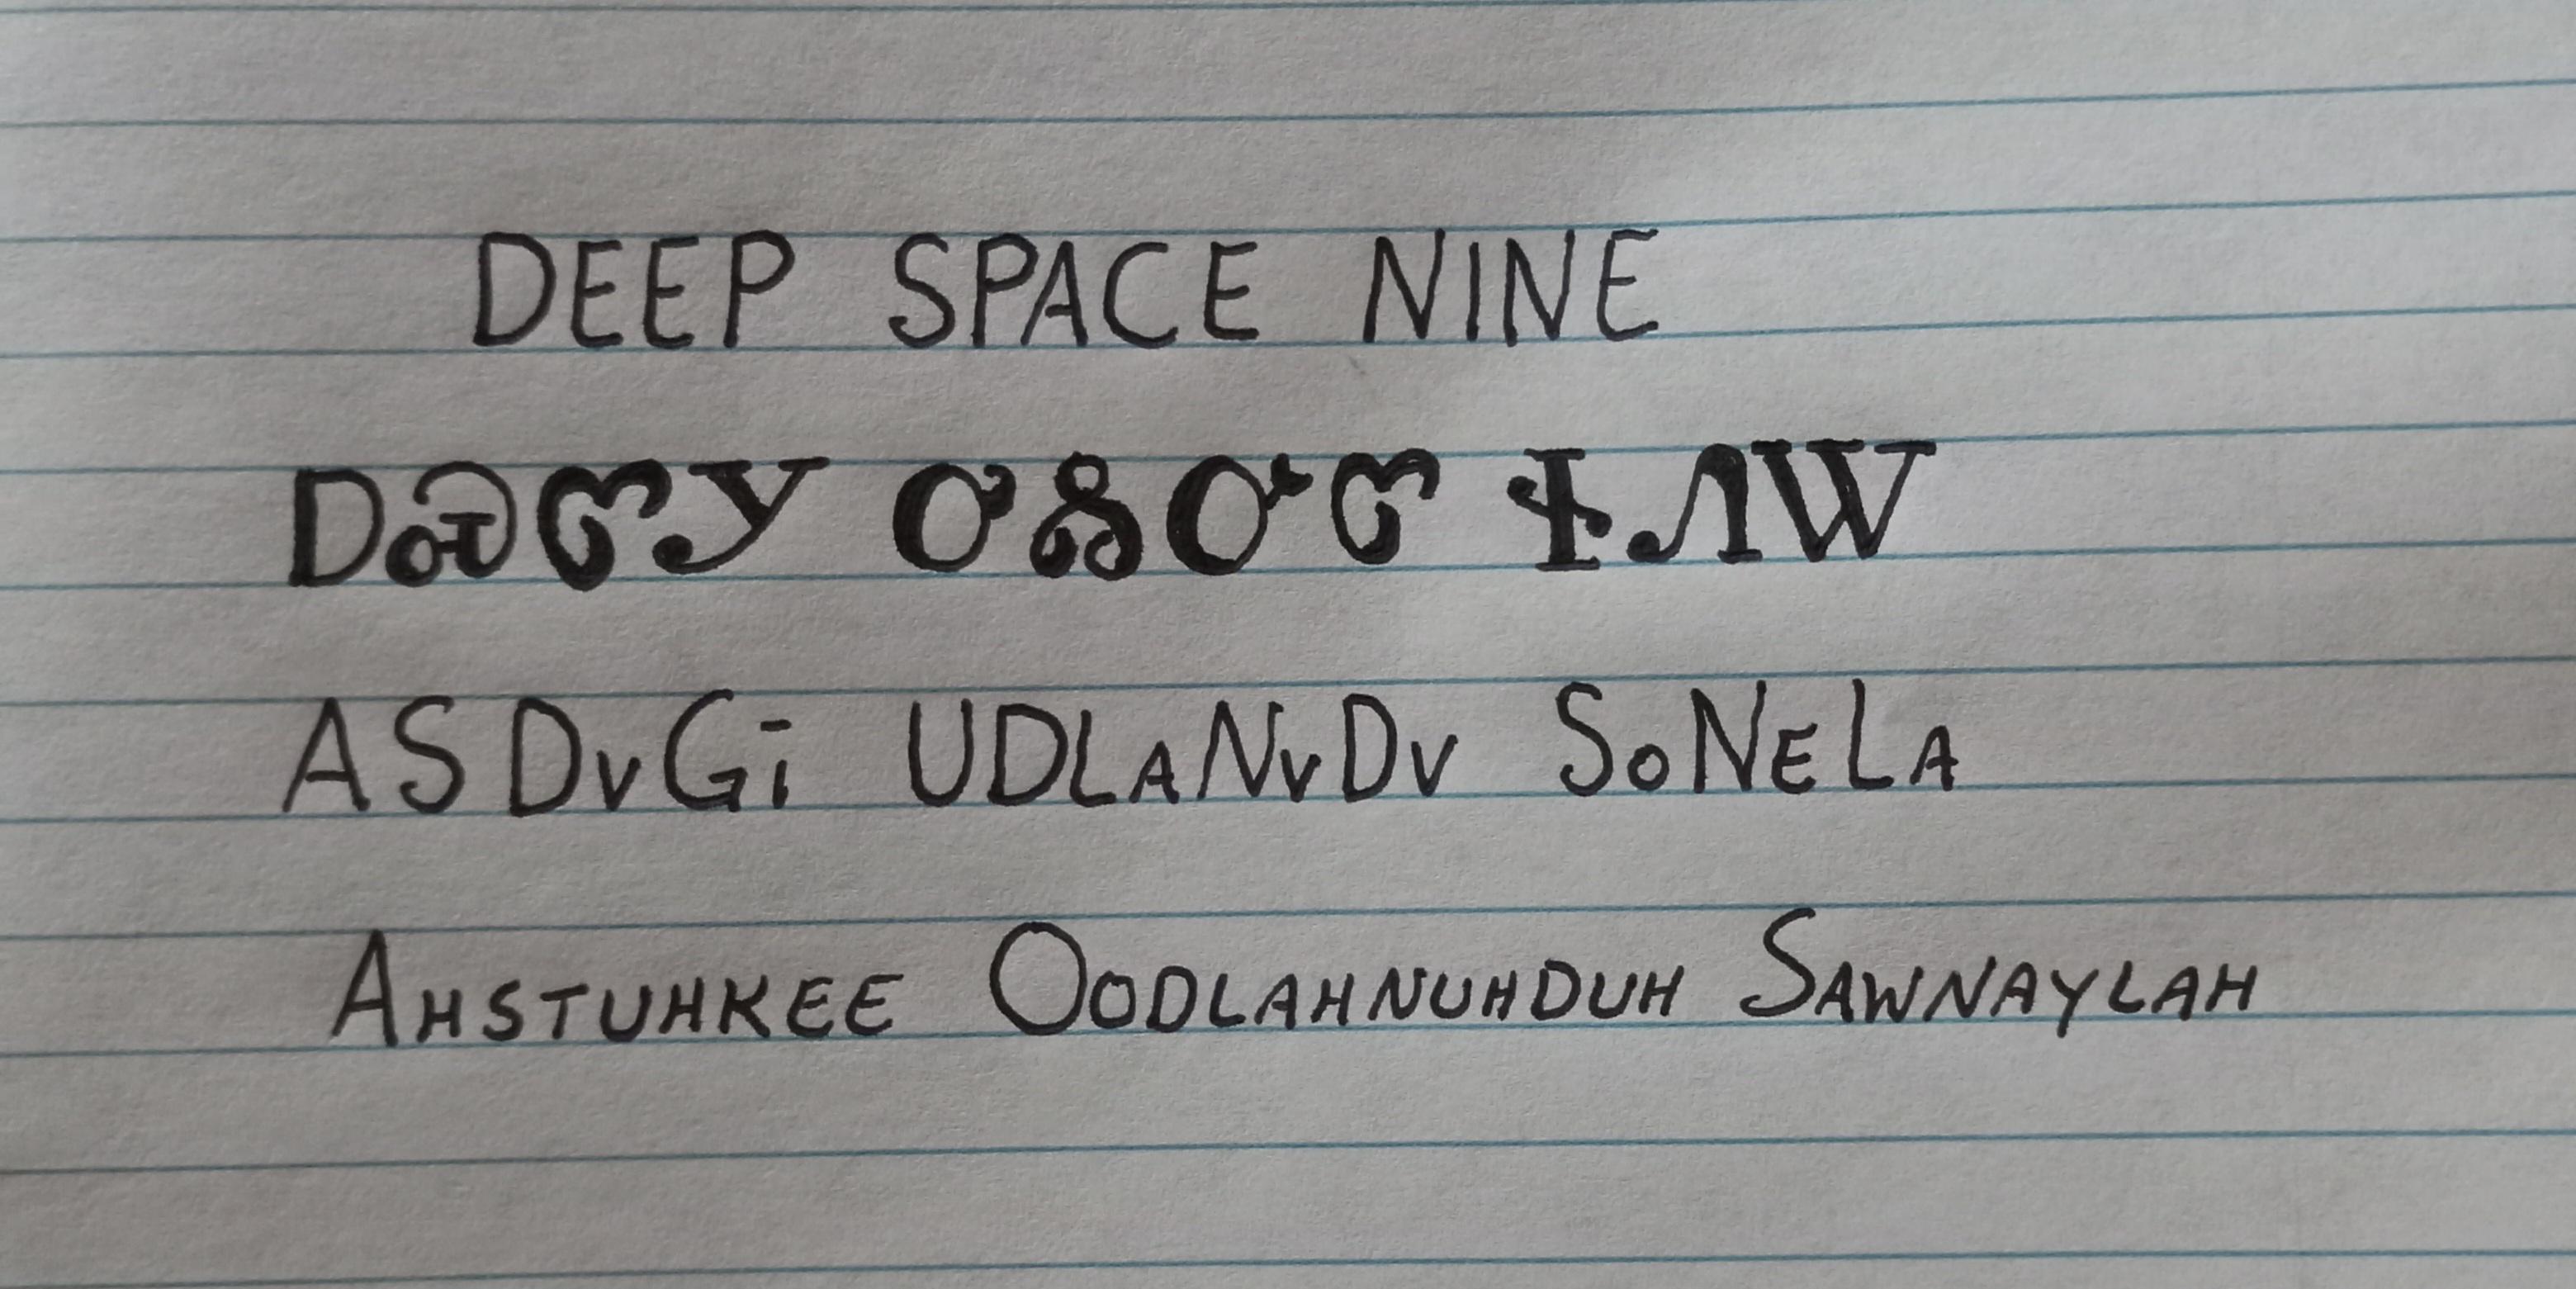 DEEP SPACE NINE
ᎠᏍᏛᎩ ᎤᏜᏅᏛ ᏐᏁᎳ
ASDvGi UDLANvDv SoNELA
AHSTUHKEE OODLAHNUHDUH SAWNAYLAH